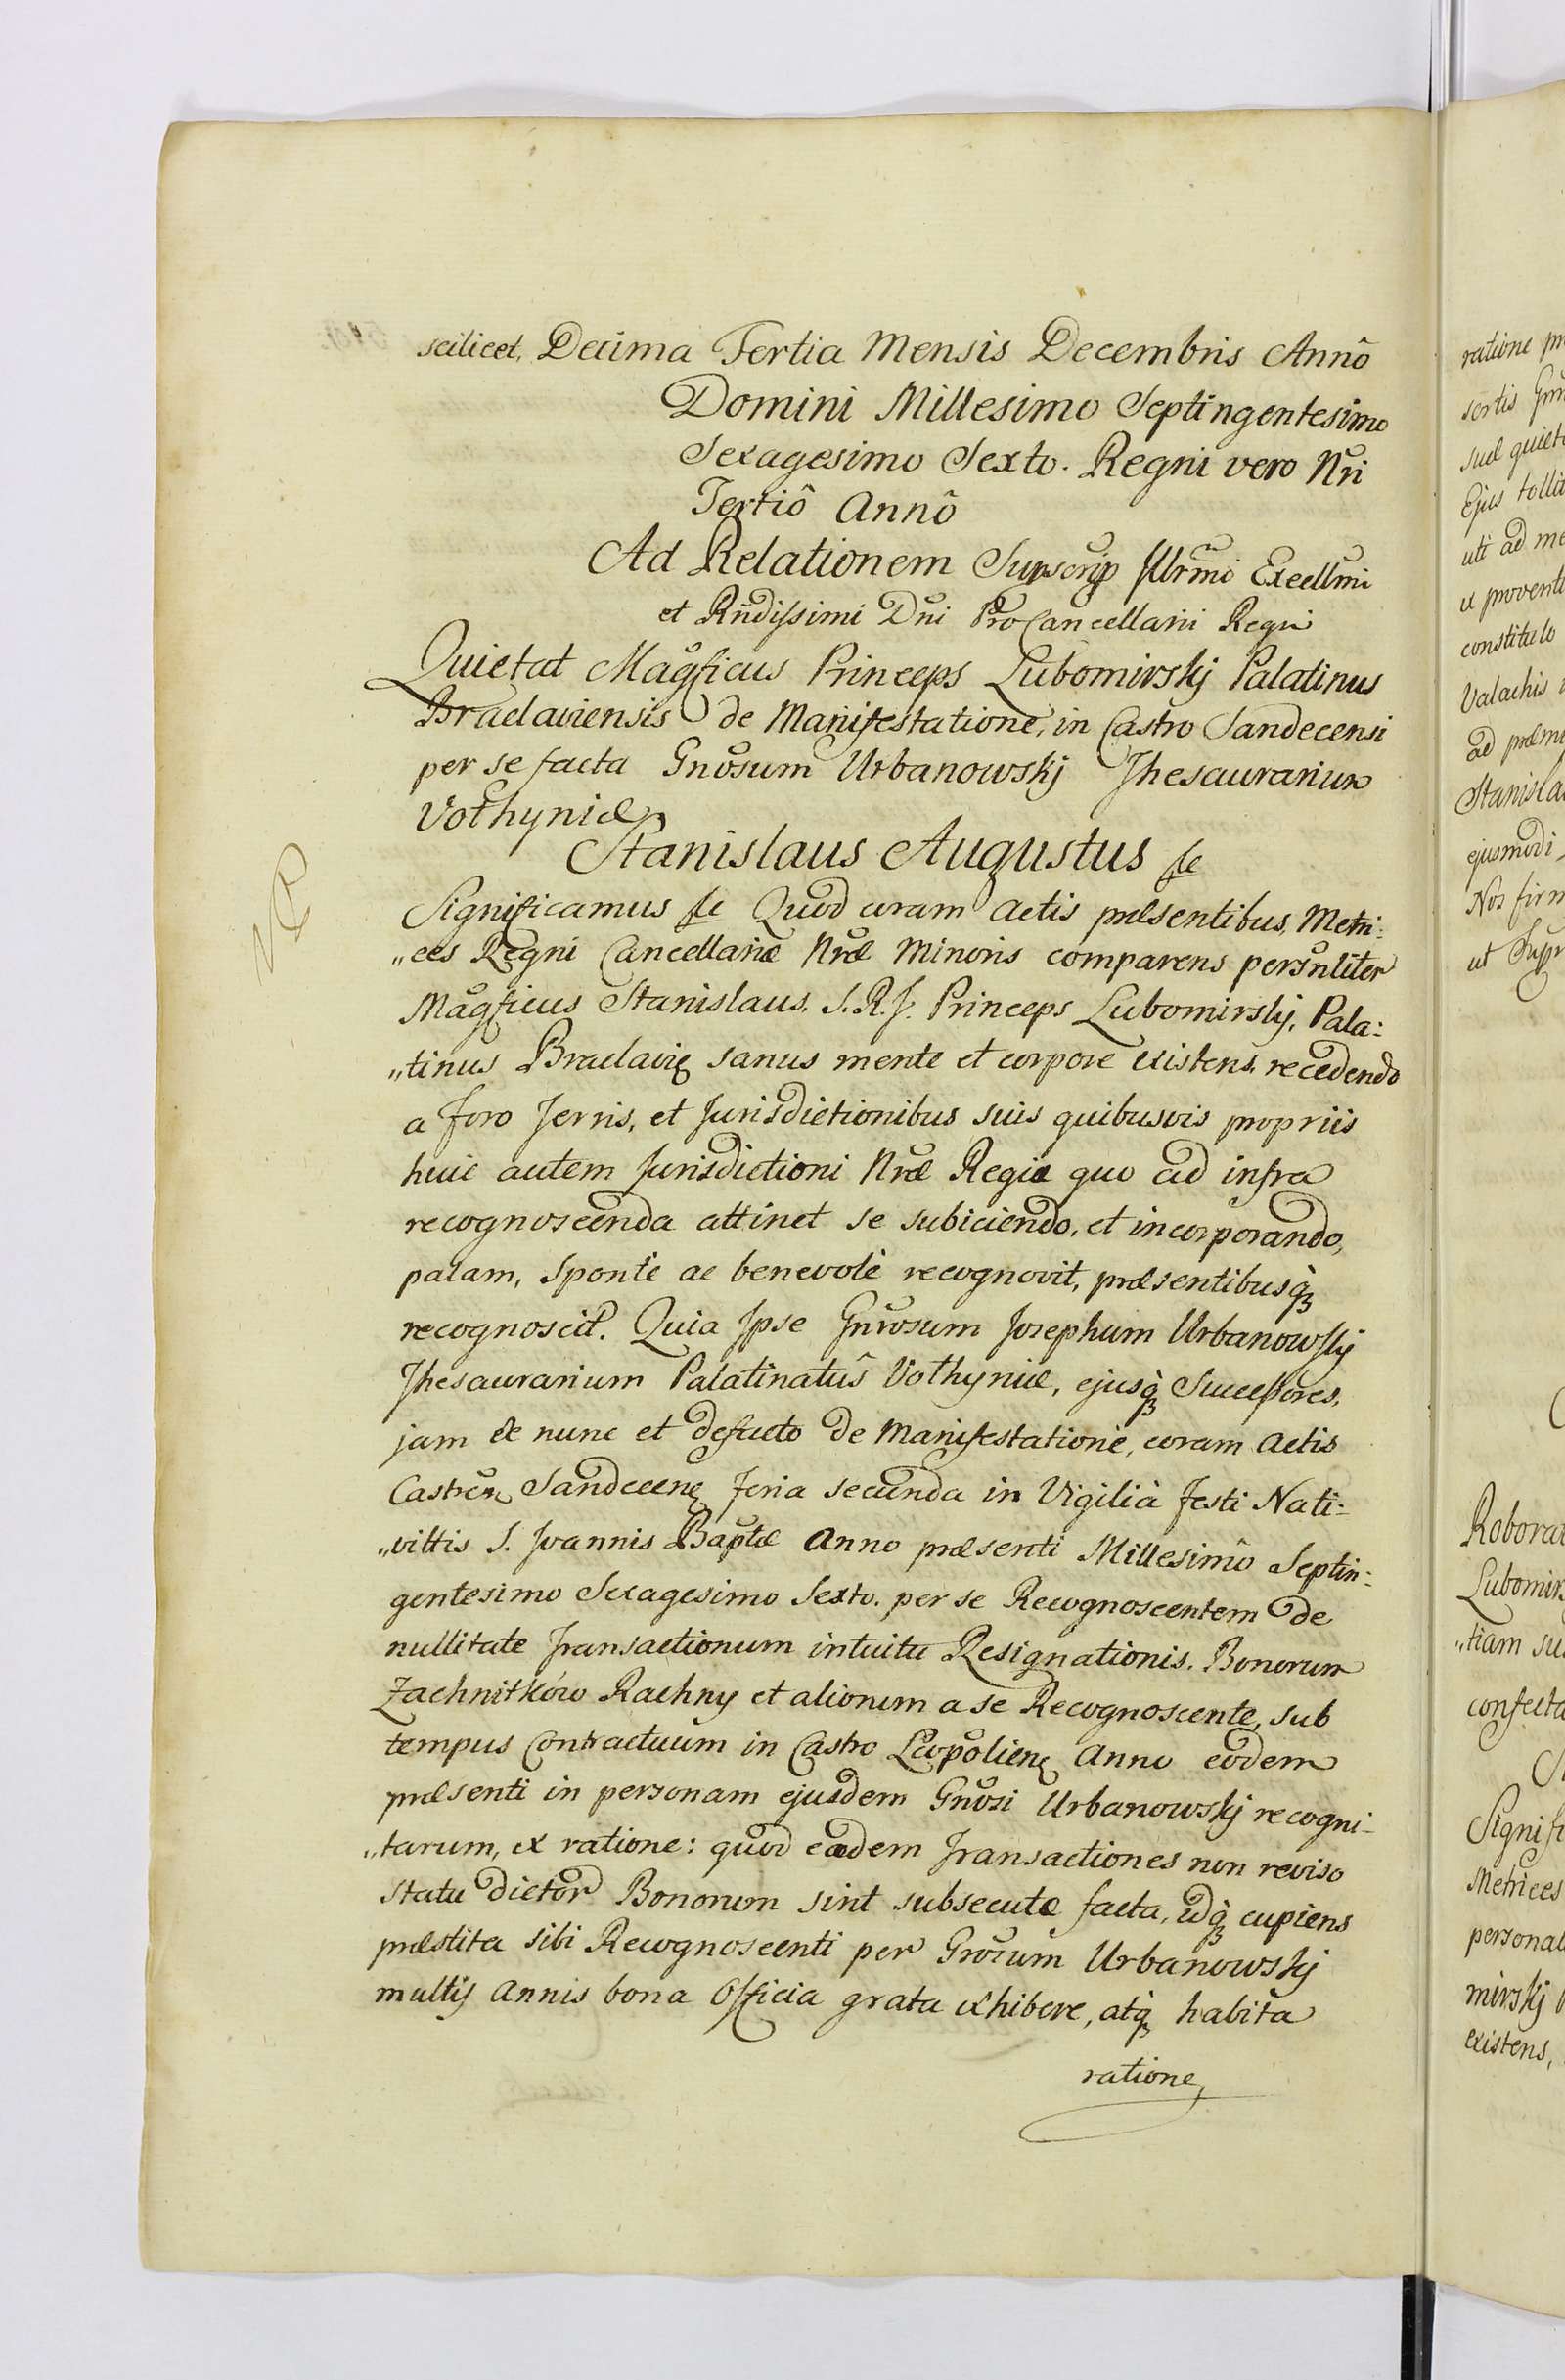 scilicet, Decima Tertia Mensis Decembris Annô
Domini Millesimo Septingentesimo
Sexagesimo Sexto. Regni vero Nri
Tertiô Annô
Ad Relationem Supscrip Illrmi Excellmi
et Rndissimi Dni ProCancellarii Regni
Quietat Magficus Princeps Lubomirskj Palatinus
Braclaviensis de Manifestatione, in Castro Sandecensi
per se facta Gnosum Urbanowskj Thesaurarium
Volhyniæ
Stanislaus Augustus &c
Significamus &c Quod coram Actis præsentibus, Metri:
„ces Regni Cancellariæ Nræ Minoris comparens persnliter
Magficus Stanislaus. S.R.J. Princeps Lubomirskj, Pala:
„tinus Braclavię sanus mente et corpore existens, recedendo
a Foro Terris, et Jurisdictionibus suis quibusvis propriis
huic autem Jurisdictioni Nræ Regiæ quo ad infra
recognoscenda attinet se subiciendo, et incorporando,
palam, sponte ac benevole recognovit, præsentibusq̀
recognoscit. Quia Ipse Gnrosum Josephum Urbanowskj
Thesaurarium Palatinatûs Volhyniæ, ejusq̀ Successores,
jam ex nunc et defacto de Manifestatione, coram Actis
Castren Sandecenę Feria secunda in Vigilià Festi Nati:
„vittis S. Joannis Baptæ Anno præsenti Millesimô Septin:
gentesimo Sexagesimo Sexto. per se Recognoscentem de
nullitate Transactionum intuitu Resignationis. Bonorum
Zachnitków Rachny et aliorum a se Recognoscente, sub
tempus Contractuum in Castro Leopolienę Anno eodem
præsenti in personam ejusdem Gnosi Urbanowskj recogni-
„tarum, ex ratione: quod eædem Transactiones non reviso
statu dictor Bonorum sint subsecutæ facta, idq̀ cupiens
præstita sibi Recognoscenti per Grosum Urbanowskj
multij Annis bona Officia grata exhibere, atq̀ habita
ratione
ratione
sortis
Ejus
uti ad
constituto
Valachis
ad
ejusmodi
Nos
ut
Lubomirs
„tiam
confecta
Signifi
Metrices
personal
mirskj
existens,